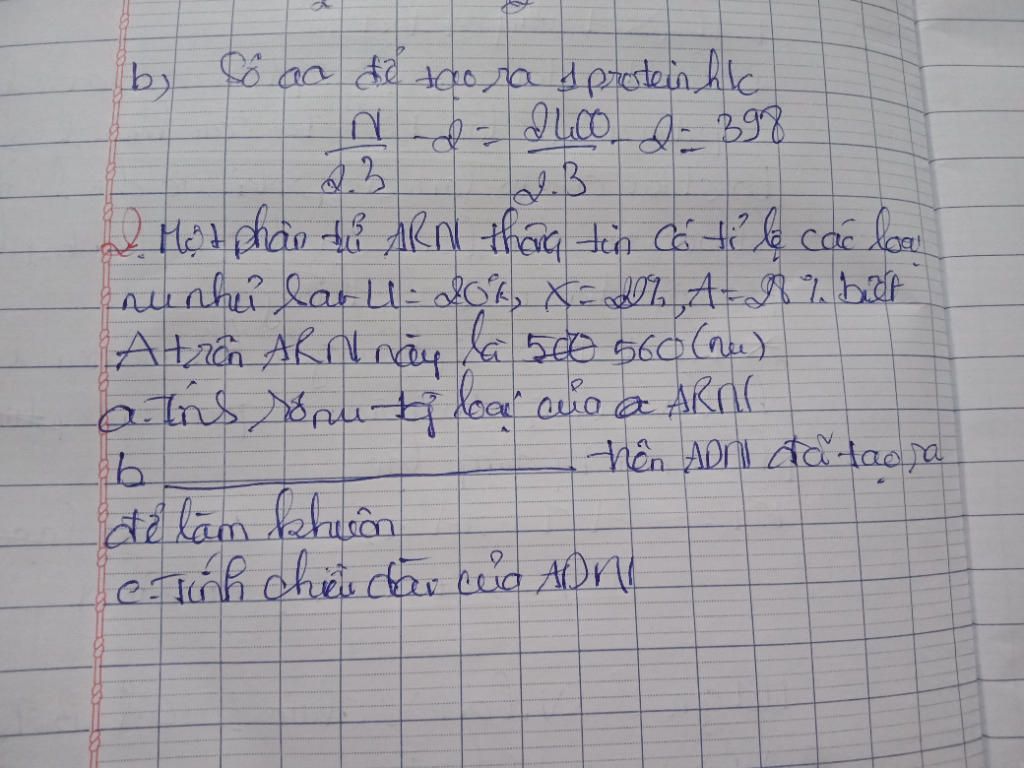 b, Số aa để tạo ra 1 protein h/c
N/2.3 - 2 = 2400/2.3 - 2 = 398
2. Một phân tử ARN thông tin có tỉ lệ các loại
nu như sau U = 20%, X = 20%, A = 28% biết
A trên ARN này là 560 (nu)
a. Tính số nu từng loại của ARN
b ____________ trên ADN đã tạo ra
để làm khuôn
c. Tính chiều dài của ADN